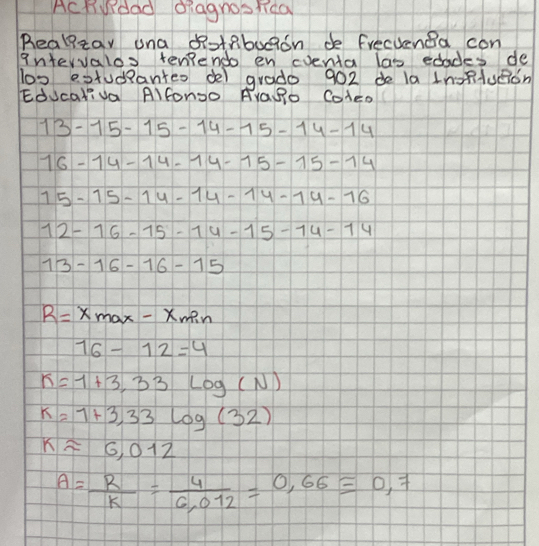 Actividad diagnostica
Realizar una distribución de frecuencia con
intervalos teniendo en cuenta las edades de
los estudiantes del grado 902 de la Institución
Educativa Alfonso Araujo Coteo
13-15-15-14-15-14-14
16-14-14-14-15-15-14
15-15-14-14-14-14-16
12-16-15-14-15-14-14
13-16-16-15
R= Xmax - Xmin
16 - 12=4
K=1+3,33 Log (N)
K=1+3,33 Log (32)
K≈ 6,012
A= R/K = 4/6,012 = 0,66 ≅ 0,7